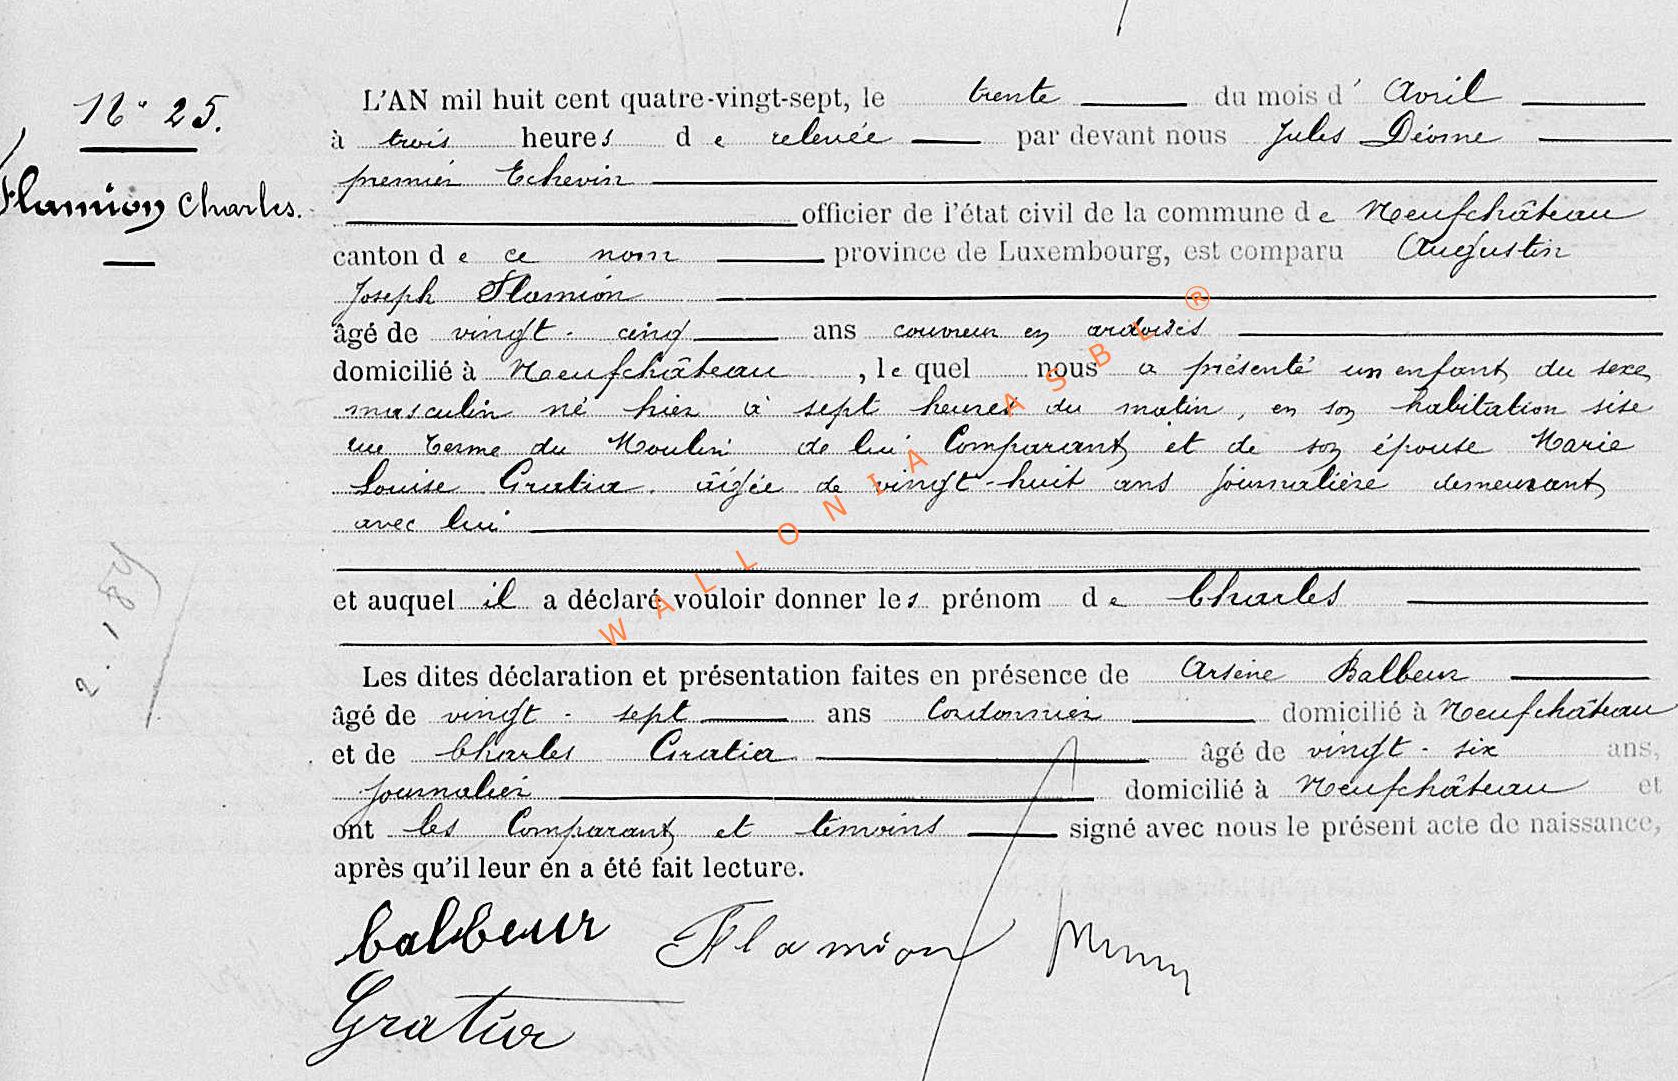 N° 25.
Flamion Charles.
L'AN mil huit cent quatre-vingt-sept, le trente du mois d' Avril
à trois heures de relevée par devant nous Jules Déome
premier Echevin
officier de l'état civil de la commune de Neufchâteau
canton de ce nom province de Luxembourg, est comparu Augustin
Joseph Flamion
âgé de vingt-cinq ans couvreur en ardoises
domicilié à Neufchâteau, lequel nous a présenté un enfant du sexe
masculin né hier à sept heures du matin, en son habitation sise
rue Terme du Moulin de lui Comparant et de son épouse Marie
Louise Gratia âgée de vingt-huit ans journalière demeurant
avec lui
et auquel il a déclaré vouloir donner les prénom de Charles
Les dites déclaration et présentation faites en présence de Arsène Balbeur
âgé de vingt-sept ans Cordonnier domicilié à Neufchâteau
et de Charles Gratia âgé de vingt-six ans,
journalier domicilié à Neufchâteau et
ont les Comparant et témoins signé avec nous le présent acte de naissance,
après qu'il leur en a été fait lecture.
balbeur Flamion
Gratia
WALLONIA ASBL ®